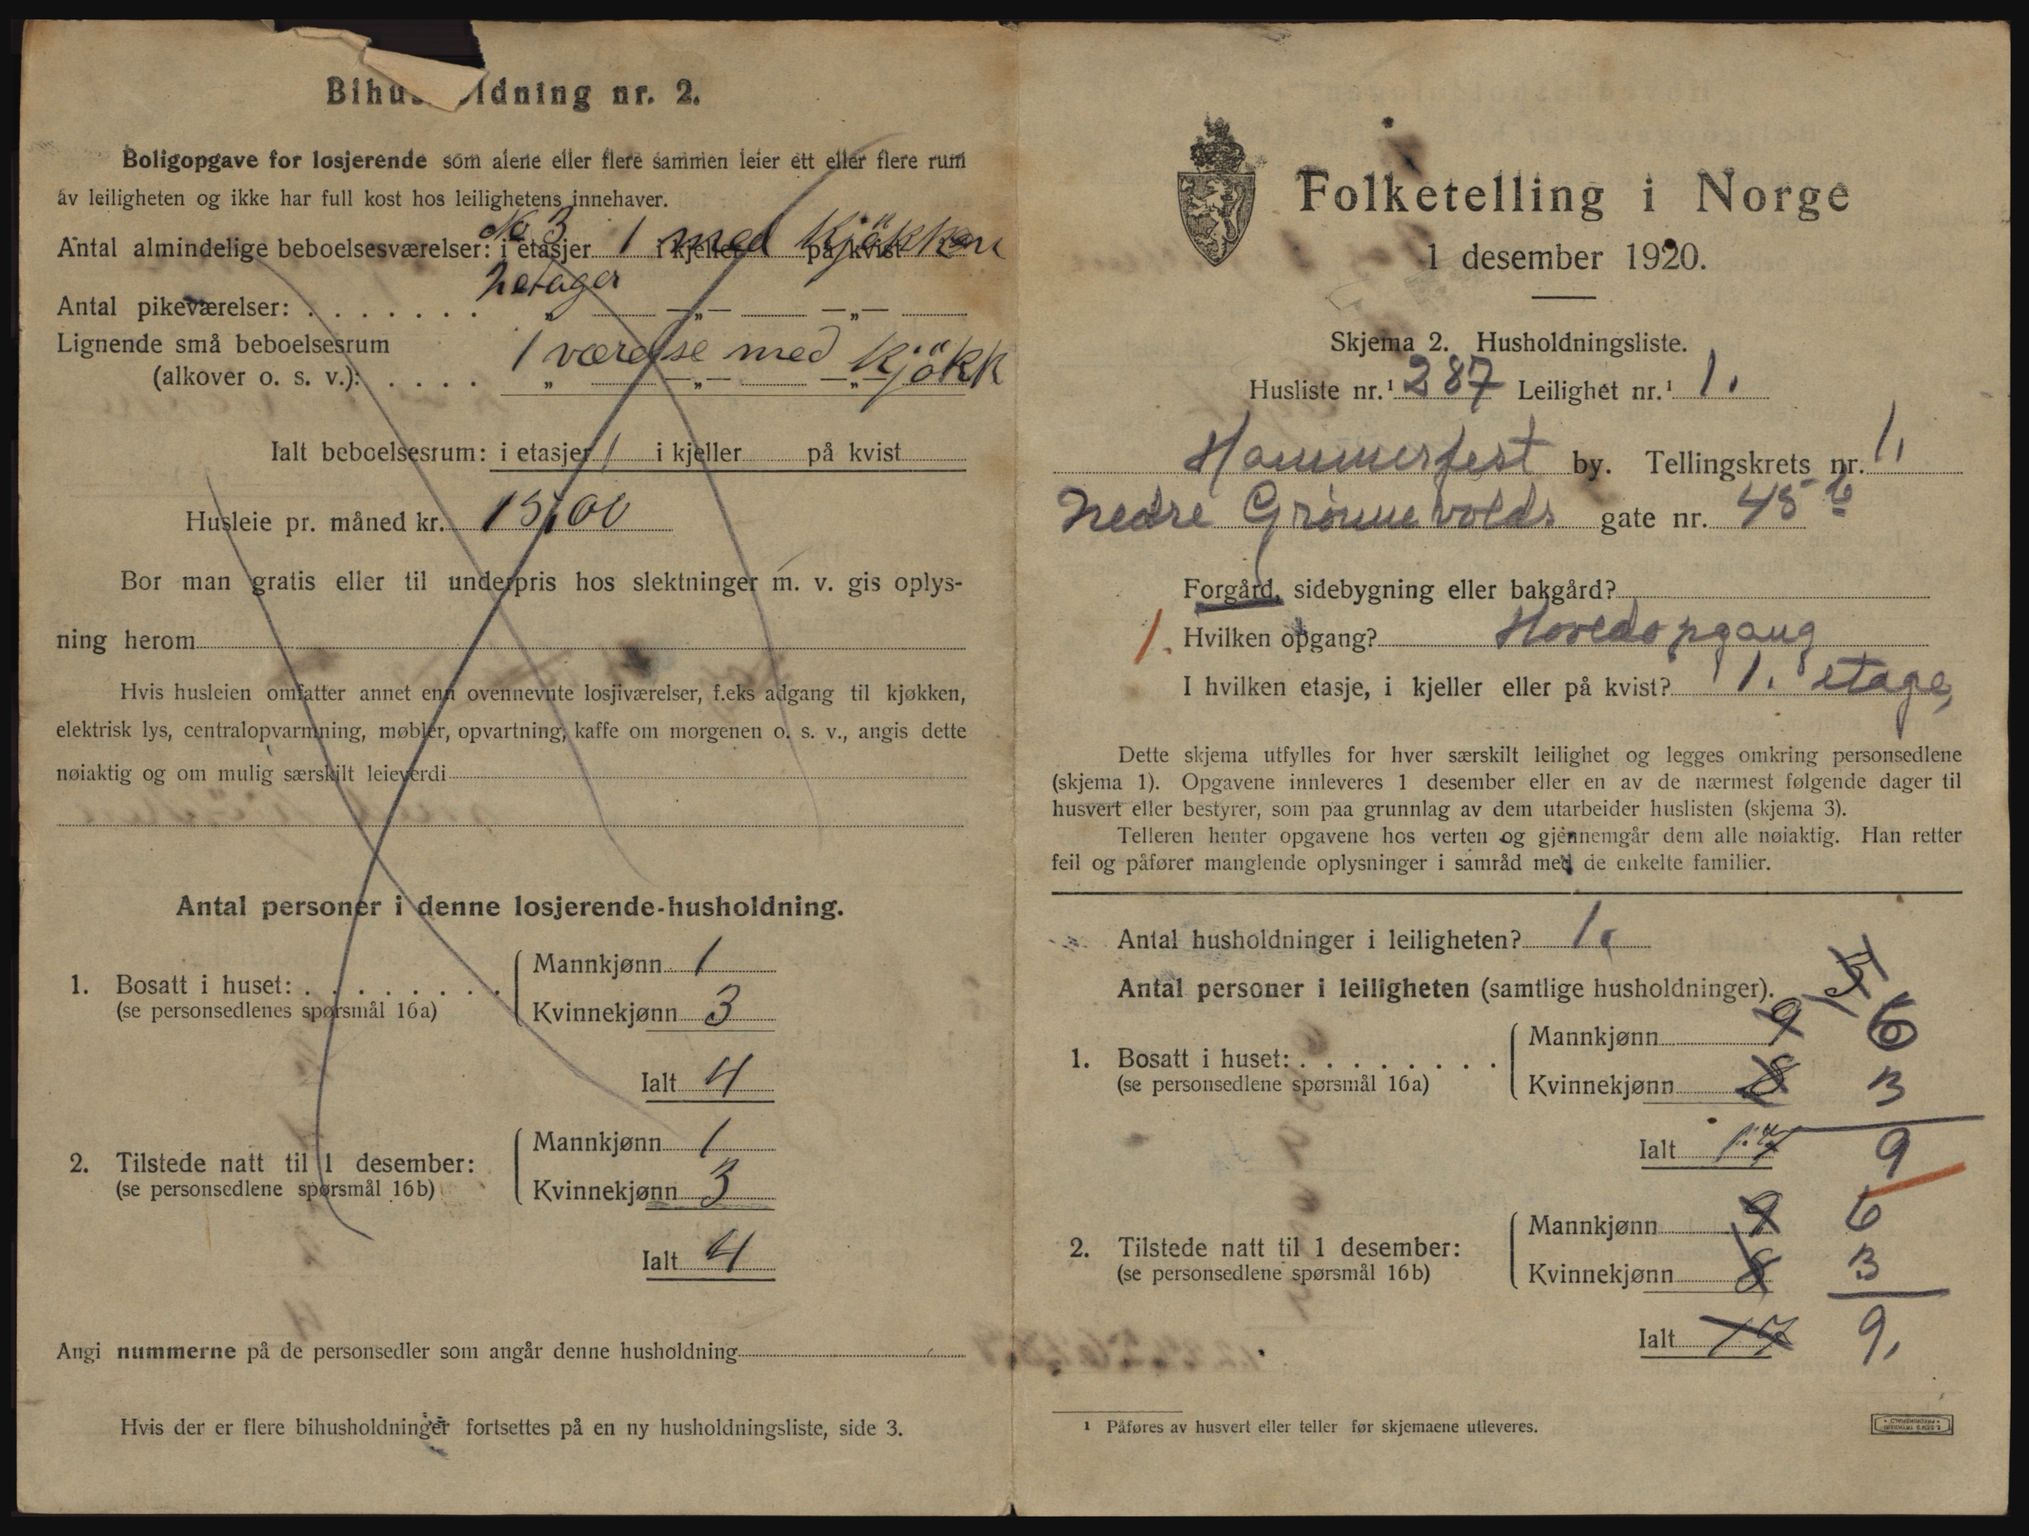 Bihusholdning nr. 2.
Boligopgave for losjerende som alene eller flere sammen leier ett eller flere rum
av leiligheten og ikke har full kost hos leilighetens innehaver.
No 3
Antal almindelige beboelsesværelser: i etasjer 1 med kjökken i kjeller på kvist
2 etager
Antal pikeværelser: . . . . . . . „ —„— —„—
Lignende små beboelsesrum
1 værelse med kjökk
(alkover o. s. v.): . . . . „ —„— —„—
Ialt beboelsesrum: i etasjer 1 i kjeller på kvist
Husleie pr. måned kr. 15,00
Bor man gratis eller til underpris hos slektninger m. v. gis oplys-
ning herom
Hvis husleien omfatter annet enn ovennevnte losjiværelser, f.eks adgang til kjøkken,
elektrisk lys, centralopvarmning, møbler, opvartning, kaffe om morgenen o. s. v., angis dette
nøiaktig og om mulig særskilt leieverdi
Antal personer i denne losjerende-husholdning.
1. Bosatt i huset: . . . . . . . .
(se personsedlenes spørsmål 16a)
Mannkjønn 1
Kvinnekjønn 3
Ialt 4
2. Tilstede natt til 1 desember:
(se personsedlene spørsmål 16b)
Mannkjønn 1
Kvinnekjønn 3
Ialt 4
Angi nummerne på de personsedler som angår denne husholdning
Hvis der er flere bihusholdninger fortsettes på en ny husholdningsliste, side 3.
Folketelling i Norge
1 desember 1920.
Skjema 2. Husholdningsliste.
Husliste nr.¹ 287 Leilighet nr.¹ 1.
Hammerfest by. Tellingskrets nr. 1.
Nedre Grønnevolds gate nr. 45 b
Forgård, sidebygning eller bakgård?
1. Hvilken opgang? Hovedopgang
I hvilken etasje, i kjeller eller på kvist? 1. etage,
Dette skjema utfylles for hver særskilt leilighet og legges omkring personsedlene
(skjema 1). Opgavene innleveres 1 desember eller en av de nærmest følgende dager til
husvert eller bestyrer, som paa grunnlag av dem utarbeider huslisten (skjema 3).
Telleren henter opgavene hos verten og gjennemgår dem alle nøiaktig. Han retter
feil og påfører manglende oplysninger i samråd med de enkelte familier.
Antal husholdninger i leiligheten? 1.
Antal personer i leiligheten (samtlige husholdninger).
1. Bosatt i huset: . . . . . . . .
(se personsedlene spørsmål 16a)
Mannkjønn 9 6
Kvinnekjønn 8 3
Ialt 17 9
2. Tilstede natt til 1 desember:
(se personsedlene spørsmål 16b)
Mannkjønn 9 6
Kvinnekjønn 8 3
Ialt 17 9.
¹ Påføres av husvert eller teller før skjemaene utleveres.